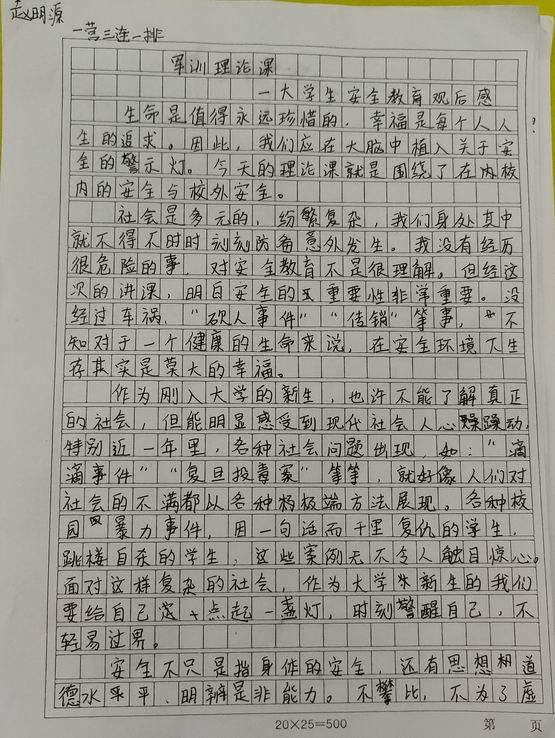 赵明源
一营三连一排
军训理论课
一大学生安全教育观后感
生命是值得永远珍惜的，幸福是每个人人
生的追求。因此，我们应在大脑中植入关于安
全的警示灯。今天的理论课就是围绕了在内校
内的安全与校外安全。
社会是多元的，纷繁复杂，我们身处其中
就不得不时时刻刻防备意外发生。我没有经历
很危险的事，对安全教育不是很理解。但经这
次的讲课，明白安全的重要性非常重要。没
经过车祸，“砍人事件”“传销”等事，不
知对于一个健康的生命来说，在安全环境下生
存其实是莫大的幸福。
作为刚入大学的新生，也许不能了解真正
的社会，但能明显感受到现代社会人心躁动，
特别近一年里，各种社会问题出现，如：“滴
滴事件”“复旦投毒案”等等，就好像人们对
社会的不满都以各种极端方法展现。各种校
园暴力事件，因一句话而千里复仇的学生，
跳楼自杀的学生，这些案例无不令人触目惊心。
面对这样复杂的社会，作为大学新生的我们
要给自己点起一盏灯，时刻警醒自己，不
轻易过界。
安全不只是指身体的安全，还有思想道
德水平、明辨是非能力。不攀比，不为了虚
20×25=500
第 页